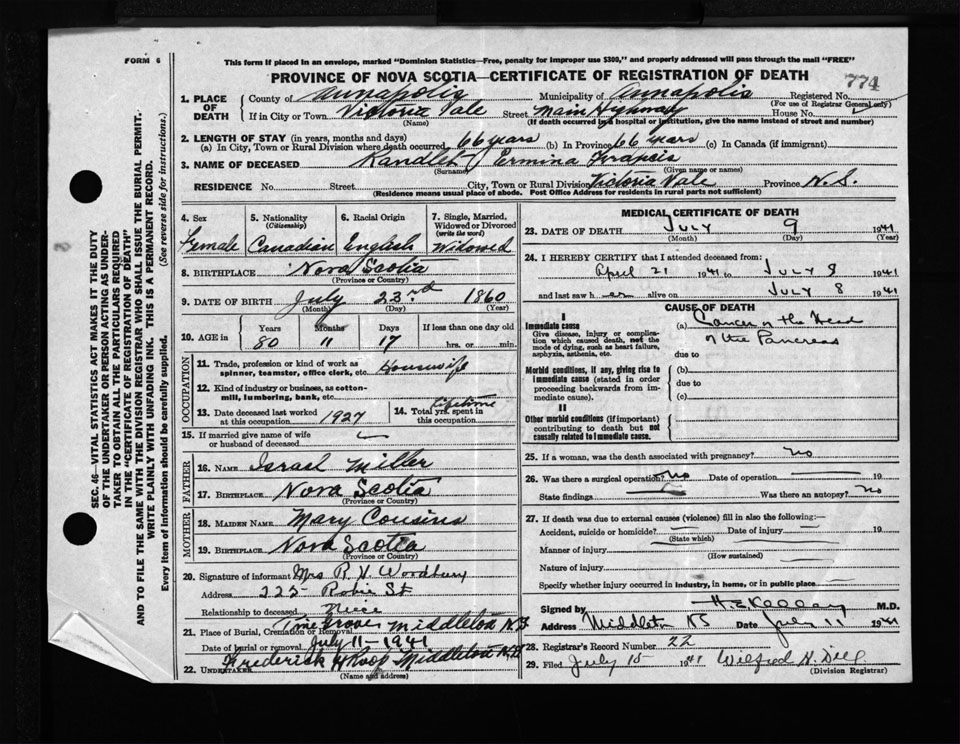 FORM 6
This form if placed in an envelope, marked "Dominion Statistics—Free, penalty for improper use $300," and properly addressed will pass through the mail "FREE"
PROVINCE OF NOVA SCOTIA—CERTIFICATE OF REGISTRATION OF DEATH
774
1. PLACE OF DEATH
County of Annapolis Municipality of Annapolis Registered No.
(For use of Registrar General only)
If in City or Town Victoria Vale Street Main Highway House No.
(Name) (If death occurred in a hospital or institution, give the name instead of street and number)
2. LENGTH OF STAY (in years, months and days)
(a) In City, Town or Rural Division where death occurred 66 years (b) In Province 66 years (c) In Canada (if immigrant)
3. NAME OF DECEASED Randlet Ermina Francis
(Surname) (Given name or names)
RESIDENCE No. Street City, Town or Rural Division Victoria Vale Province N.S.
(Residence means usual place of abode. Post Office Address for residents in rural parts not sufficient)
4. Sex
Female
5. Nationality (Citizenship)
Canadian
6. Racial Origin
English
7. Single, Married, Widowed or Divorced (write the word)
Widowed
8. BIRTHPLACE Nova Scotia
(Province or Country)
9. DATE OF BIRTH July 23rd 1860
(Month) (Day) (Year)
10. AGE in Years Months Days If less than one day old
80 11 17 hrs. or min.
OCCUPATION
11. Trade, profession or kind of work as spinner, teamster, office clerk, etc. Housewife
12. Kind of industry or business, as cotton-mill, lumbering, bank, etc.
13. Date deceased last worked at this occupation 1927
14. Total yrs. spent in this occupation lifetime
15. If married give name of wife or husband of deceased
FATHER
16. NAME Israel Miller
17. BIRTHPLACE Nova Scotia
(Province or Country)
MOTHER
18. MAIDEN NAME Mary Cousins
19. BIRTHPLACE Nova Scotia
(Province or Country)
20. Signature of informant Mrs R. V. Woodbury
Address 225 Robie St
Relationship to deceased Niece
21. Place of Burial, Cremation or Removal Pine Grove, Middleton N.S.
Date of burial or removal July 11-1941
22. UNDERTAKER Frederick Roop Middleton N.S.
(Name and address)
MEDICAL CERTIFICATE OF DEATH
23. DATE OF DEATH July 9 1941
(Month) (Day) (Year)
24. I HEREBY CERTIFY that I attended deceased from:
April 21 1941 to July 8 1941
and last saw her alive on July 8 1941
CAUSE OF DEATH
I
Immediate cause
Give disease, injury or complication which caused death, not the mode of dying, such as heart failure, asphyxia, asthenia, etc.
(a) Cancer of the Head of the Pancreas
due to
Morbid conditions, if any, giving rise to immediate cause (stated in order proceeding backwards from immediate cause).
(b)
due to
(c)
II
Other morbid conditions (if important) contributing to death but not causally related to immediate cause.
25. If a woman, was the death associated with pregnancy? no
26. Was there a surgical operation? no Date of operation 19
State findings Was there an autopsy? no
27. If death was due to external causes (violence) fill in also the following:—
Accident, suicide or homicide? Date of injury 19
(State which)
Manner of injury
(How sustained)
Nature of injury
Specify whether injury occurred in industry, in home, or in public place
Signed by M.D.
Address Middleton NS Date July 11 1941
28. Registrar's Record Number 22
29. Filed July 15 1941 Wilfred H. Dill
(Division Registrar)
SEC. 46—VITAL STATISTICS ACT MAKES IT THE DUTY
OF THE UNDERTAKER OR PERSON ACTING AS UNDER-
TAKER TO OBTAIN ALL THE PARTICULARS REQUIRED
IN THE "CERTIFICATE OF REGISTRATION OF DEATH"
AND TO FILE THE SAME WITH THE DIVISION REGISTRAR WHO SHALL ISSUE THE BURIAL PERMIT.
WRITE PLAINLY WITH UNFADING INK. THIS IS A PERMANENT RECORD.
Every item of information should be carefully supplied. (See reverse side for instructions.)